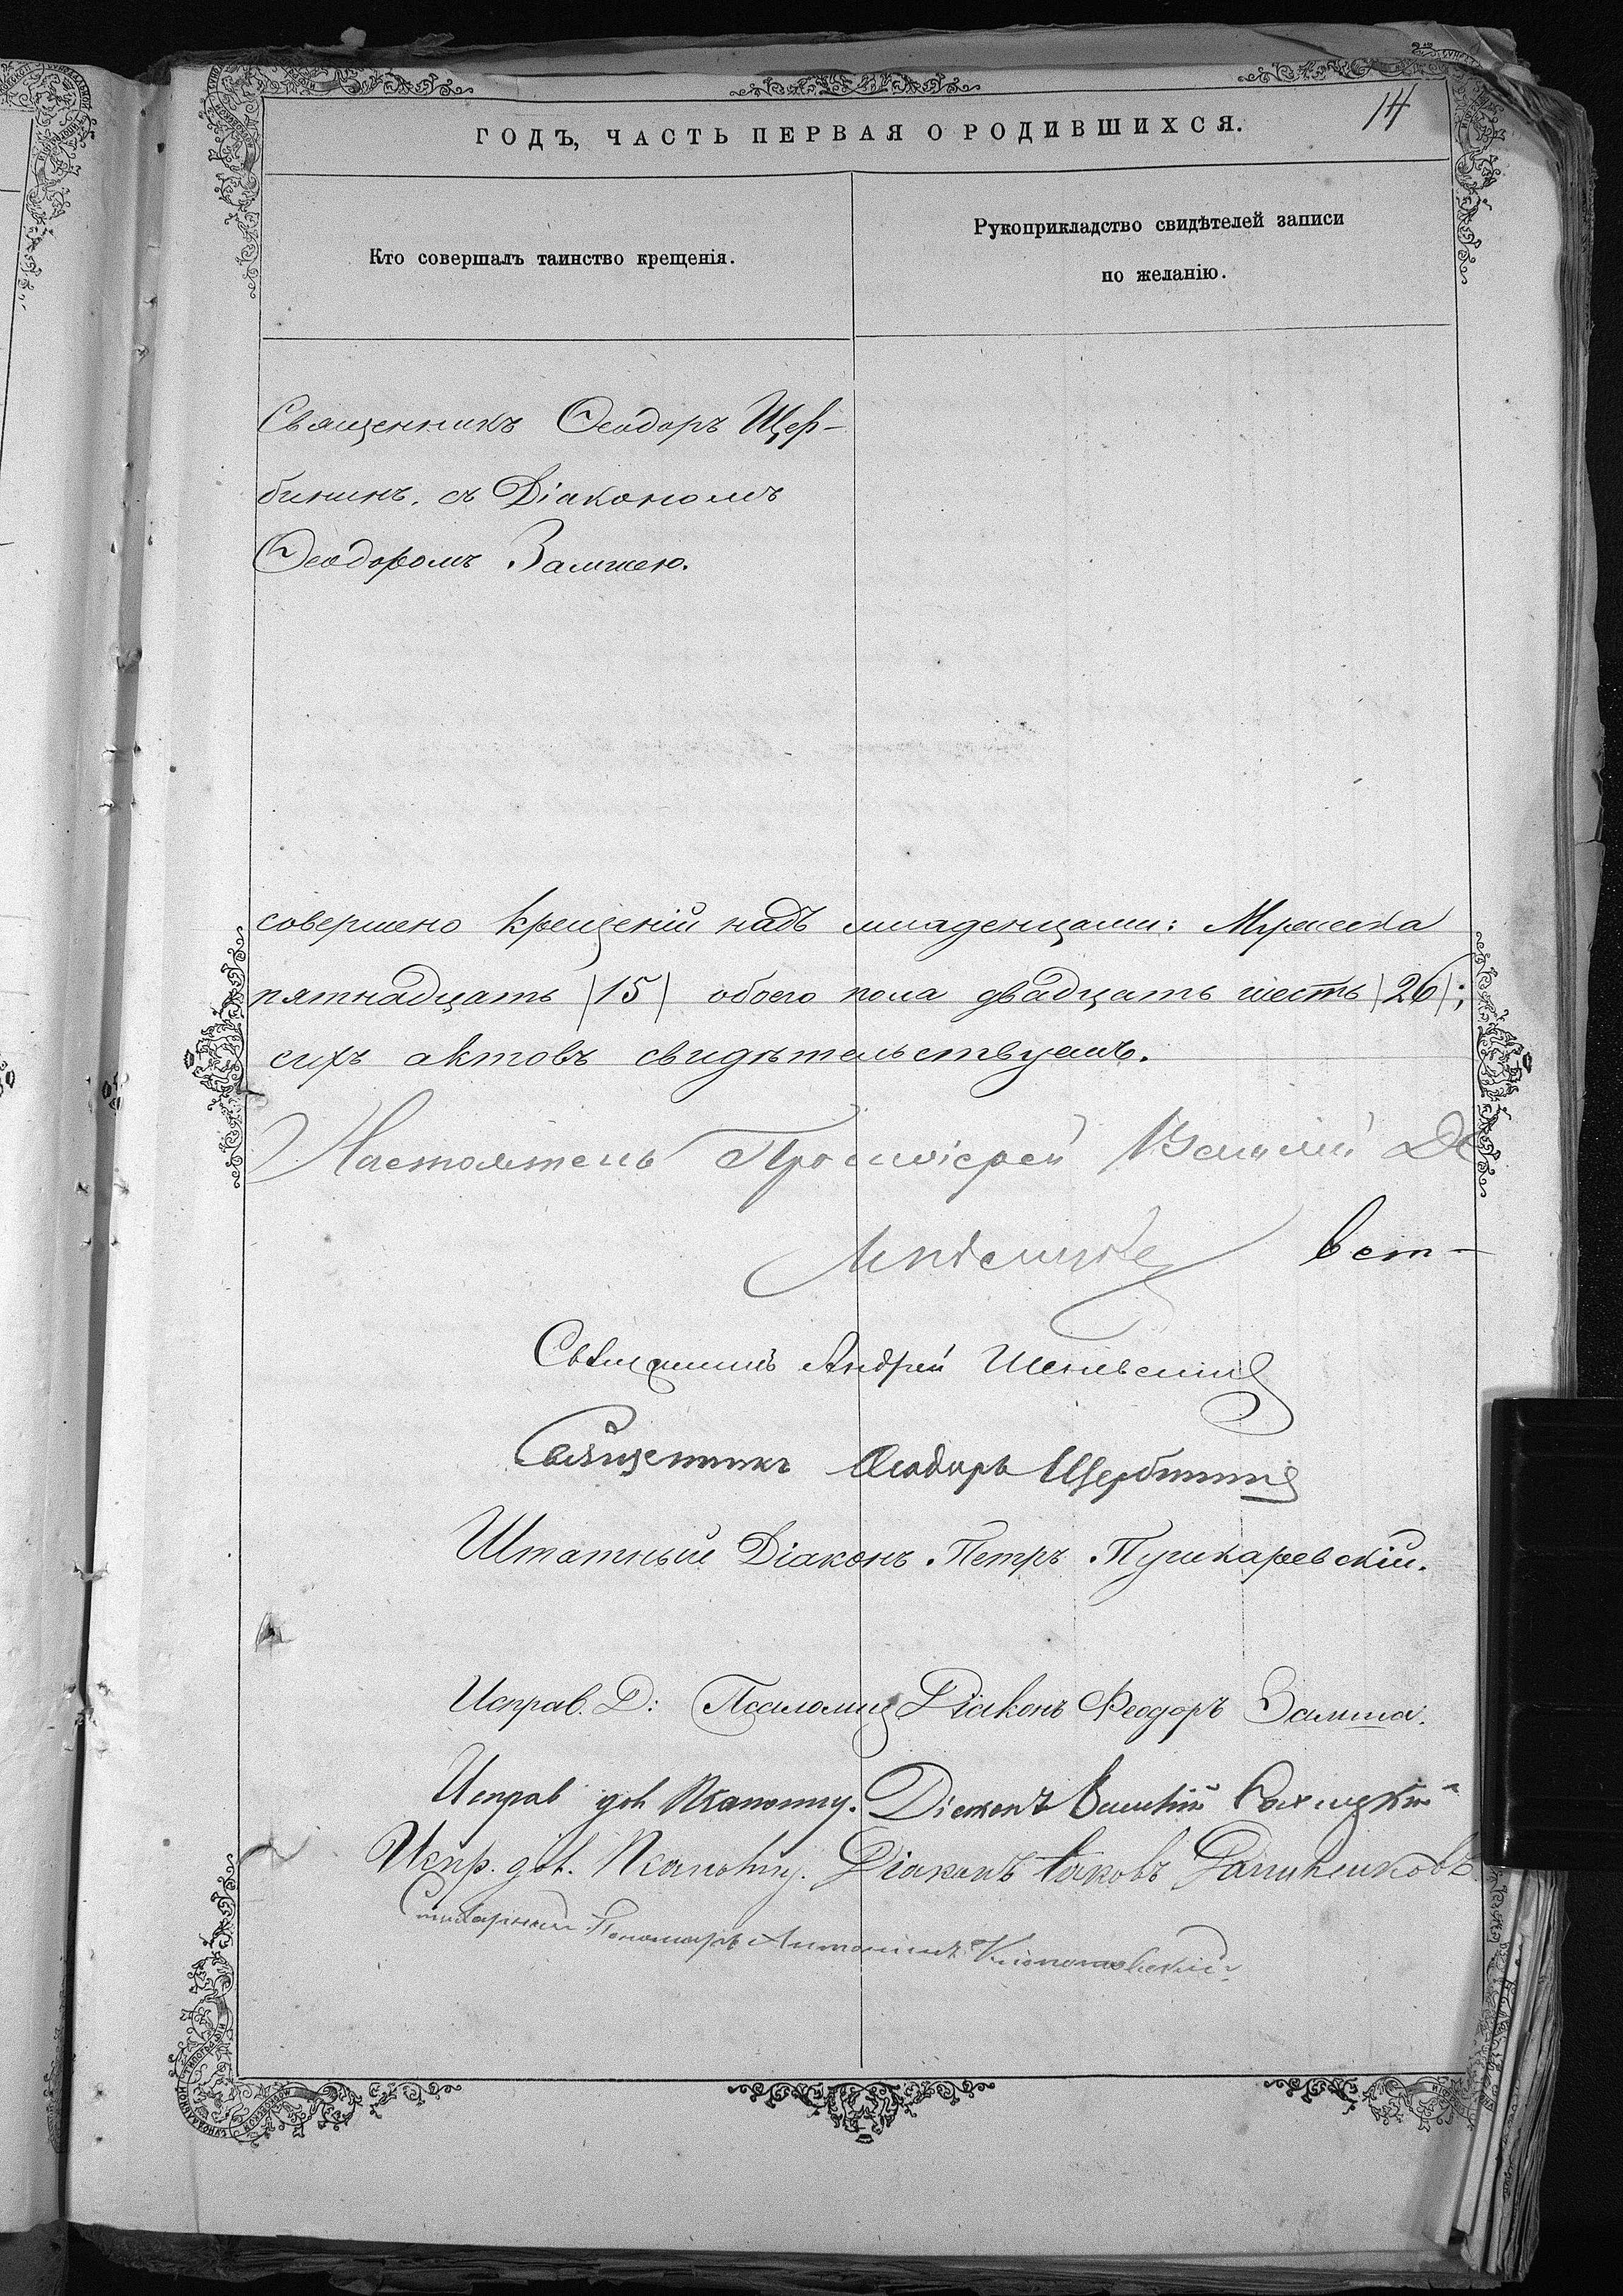 14
ГОДЪ, ЧАСТЬ ПЕРВАЯ О РОДИВШИХСЯ.
Кто совершалъ таинство крещенія.
Рукоприкладство свидѣтелей записи
по желанію.
Священникъ Ѳеодоръ Щер-
бининъ, съ Діакономъ
Ѳеодоромъ Замшею.
совершено крещеній надъ младенцами: Мужеска
пятнадцать |15| обоего пола двадцать шесть |26|;
сихъ актовъ свидѣтельствуемъ.
Настоятель Протоіерей Василій
вет-
Священникъ Андрей
Священникъ Ѳеодоръ Щербининъ
Штатный Діаконъ Петръ Пушкаревскій.
Исправ. Д: Псаломщ Діаконъ Ѳеодоръ Замша.
Исправ дол Псаломщ. Діаконъ Василій
Испр. дол. Псаломщ. Діаконъ Іаковъ
Стихарный Пономарь